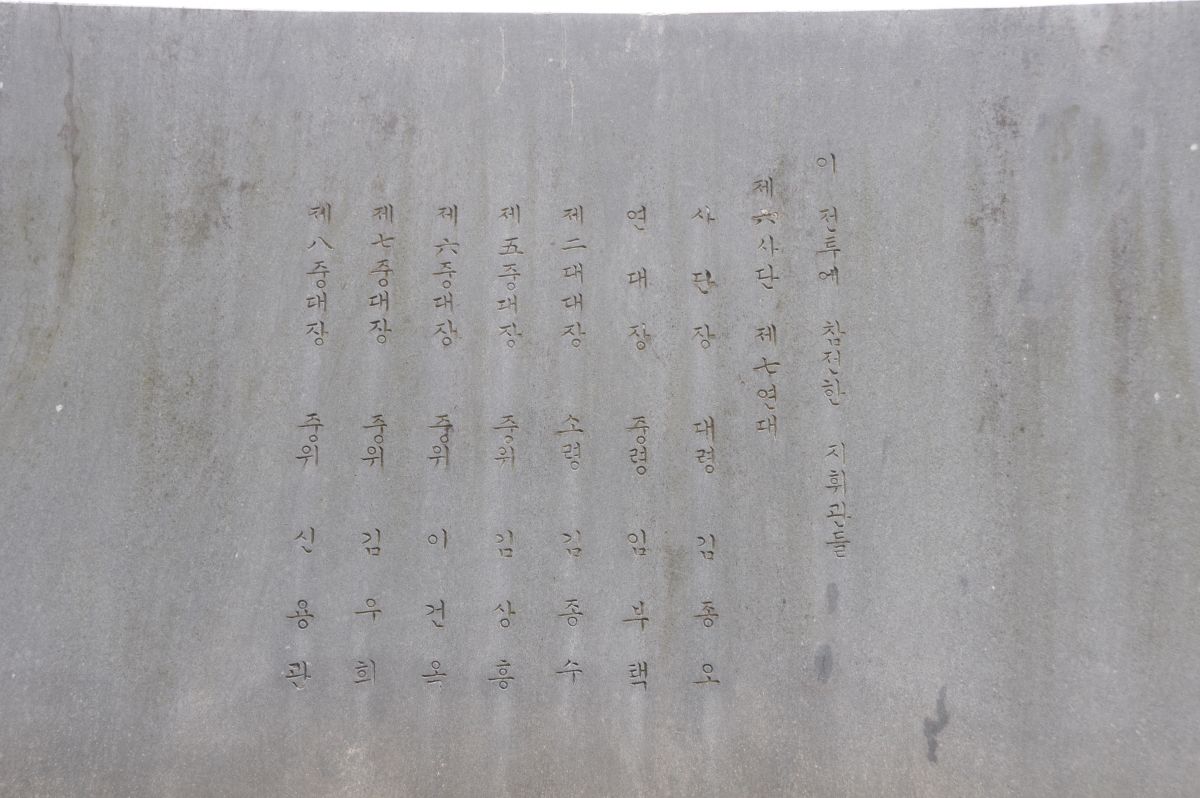 이 전투에 참전한 지휘관들
제六사단 제七연대
사단장 대령 김종오
연대장 중령 임부택
제二대대장 소령 김종수
제五중대장 중위 김상흥
제六중대장 중위 이건옥
제七중대장 중위 김우희
제八중대장 중위 신용관